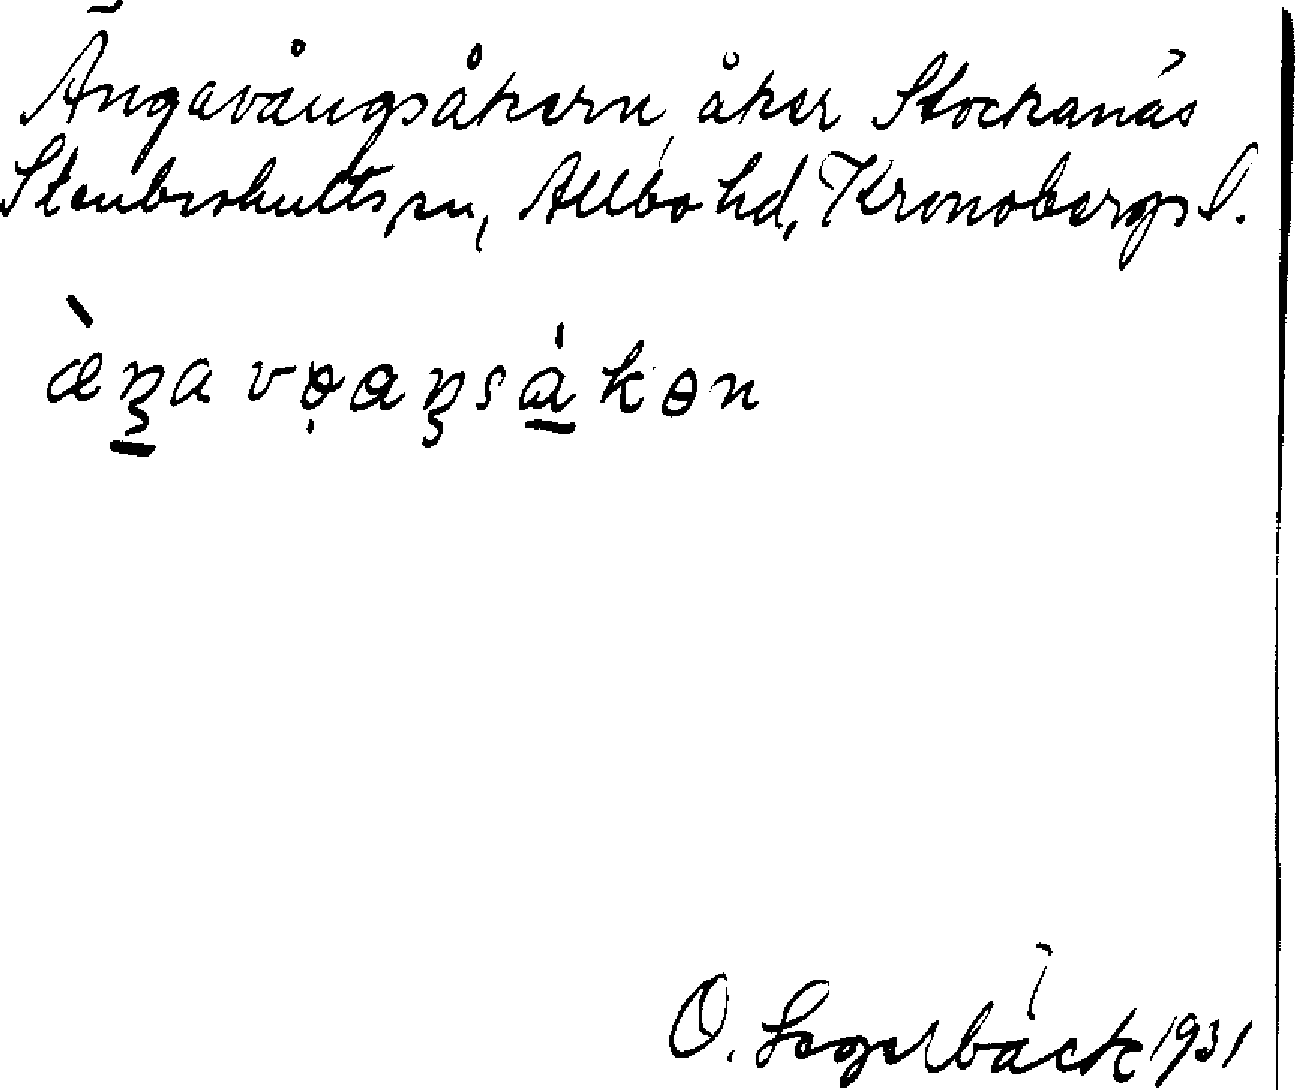 Ängavångsåkern, åker Stockanäs
Stenbrohults sn, Allbo hd, Kronobergs l.
æŋa vɵaŋsåkɵn
O. Segelbäck 1931